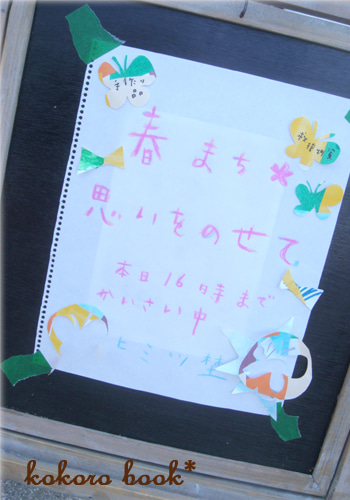 手作り
品
春まち
思いをのせて
本日16時まで
かいさい中
ヒミツ堂
kokoro book*